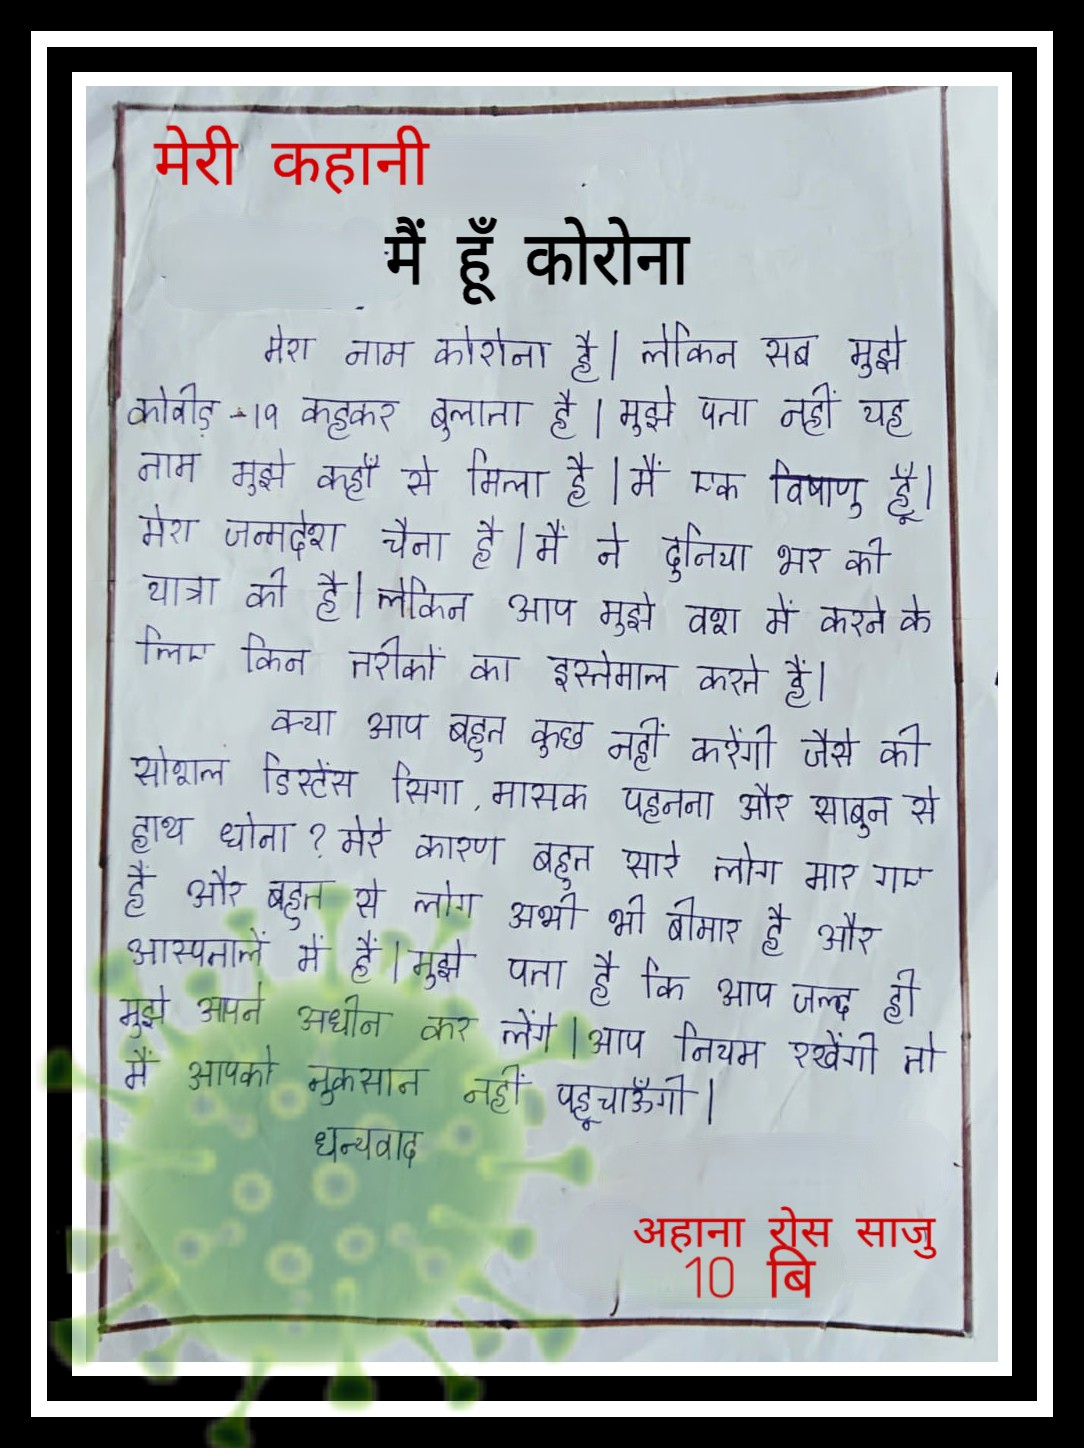 मेरी कहानी
मैं हूँ कोरोना
मेरा नाम कोरोना है। लेकिन सब मुझे
कोवीड़ -19 कहकर बुलाता है। मुझे पता नहीं यह
नाम मुझे कहाँ से मिला है। मैं एक विषाणु हूँ।
मेरा जन्मदेश चैना है। मैं ने दुनिया भर की
यात्रा की है। लेकिन आप मुझे वश में करने के
लिए किन तरीकों का इस्तेमाल करते हैं।
क्या आप बहुत कुछ नहीं करेंगी जैसे की
सोशल डिस्टेंस सिगा, मासक पहनना और साबुन से
हाथ धोना? मेरे कारण बहुत सारे लोग मार गए
हैं और बहुत से लोग अभी भी बीमार है और
आस्पतालें में हैं। मुझे पता है कि आप जल्द ही
मुझे आपने अधीन कर लेंगे। आप नियम रखेंगी तो
मैं आपको नुकसान नहीं पहूचाऊँगी।
धन्यवाद
अहाना रोस साजु
10 बि